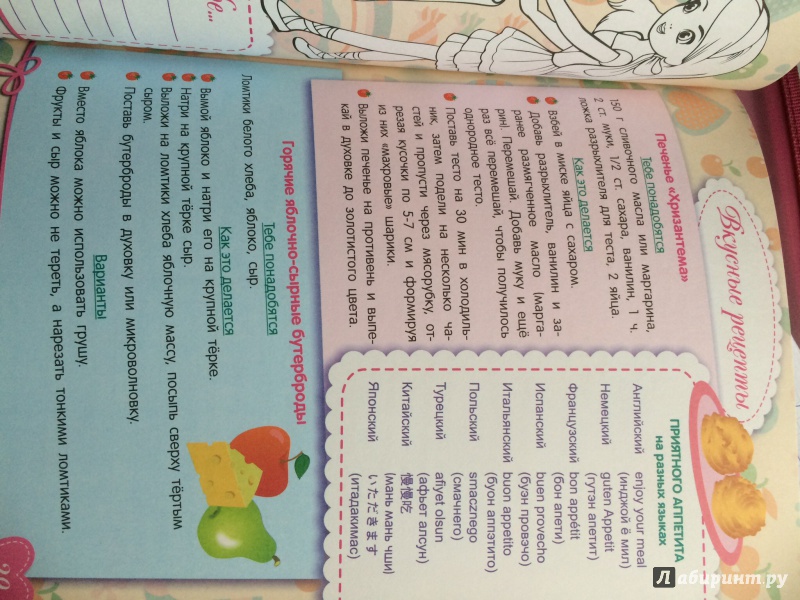 Вкусные рецепты
Печенье «Хризантема»
Тебе понадобятся
150 г сливочного масла или маргарина,
2 ст. муки, 1/2 ст. сахара, ванилин, 1 ч.
ложка разрыхлителя для теста, 2 яйца.
Как это делается
Взбей в миске яйца с сахаром.
Добавь разрыхлитель, ванилин и за-
ранее размягченное масло (марга-
рин)! Перемешай. Добавь муку и ещё
раз всё перемешай, чтобы получилось
однородное тесто.
Поставь тесто на 30 мин в холодиль-
ник, затем подели на несколько ча-
стей и пропусти через мясорубку, от-
резая кусочки по 5-7 см и формируя
из них «махровые» шарики.
Выложи печенье на противень и выпе-
кай в духовке до золотистого цвета.
ПРИЯТНОГО АППЕТИТА
на разных языках
Английский enjoy your meal
(инджой ё мил)
Немецкий guten Appetit
(гутэн апетит)
Французский bon appétit
(бон апети)
Испанский buen provecho
(буэн провэчо)
Итальянский buon appetito
(буон аппэтито)
Польский smacznego
(смачнего)
Турецкий afiyet olsun
(афьет алсун)
Китайский 慢慢吃
(мань мань чши)
Японский いただきます
(итадакимас)
Горячие яблочно-сырные бутерброды
Тебе понадобятся
Ломтики белого хлеба, яблоко, сыр.
Как это делается
Вымой яблоко и натри его на крупной тёрке.
Натри на крупной тёрке сыр.
Выложи на ломтики хлеба яблочную массу, посыпь сверху тёртым
сыром.
Поставь бутерброды в духовку или микроволновку.
Варианты
Вместо яблока можно использовать грушу.
Фрукты и сыр можно не тереть, а нарезать тонкими ломтиками.
Лабиринт.ру